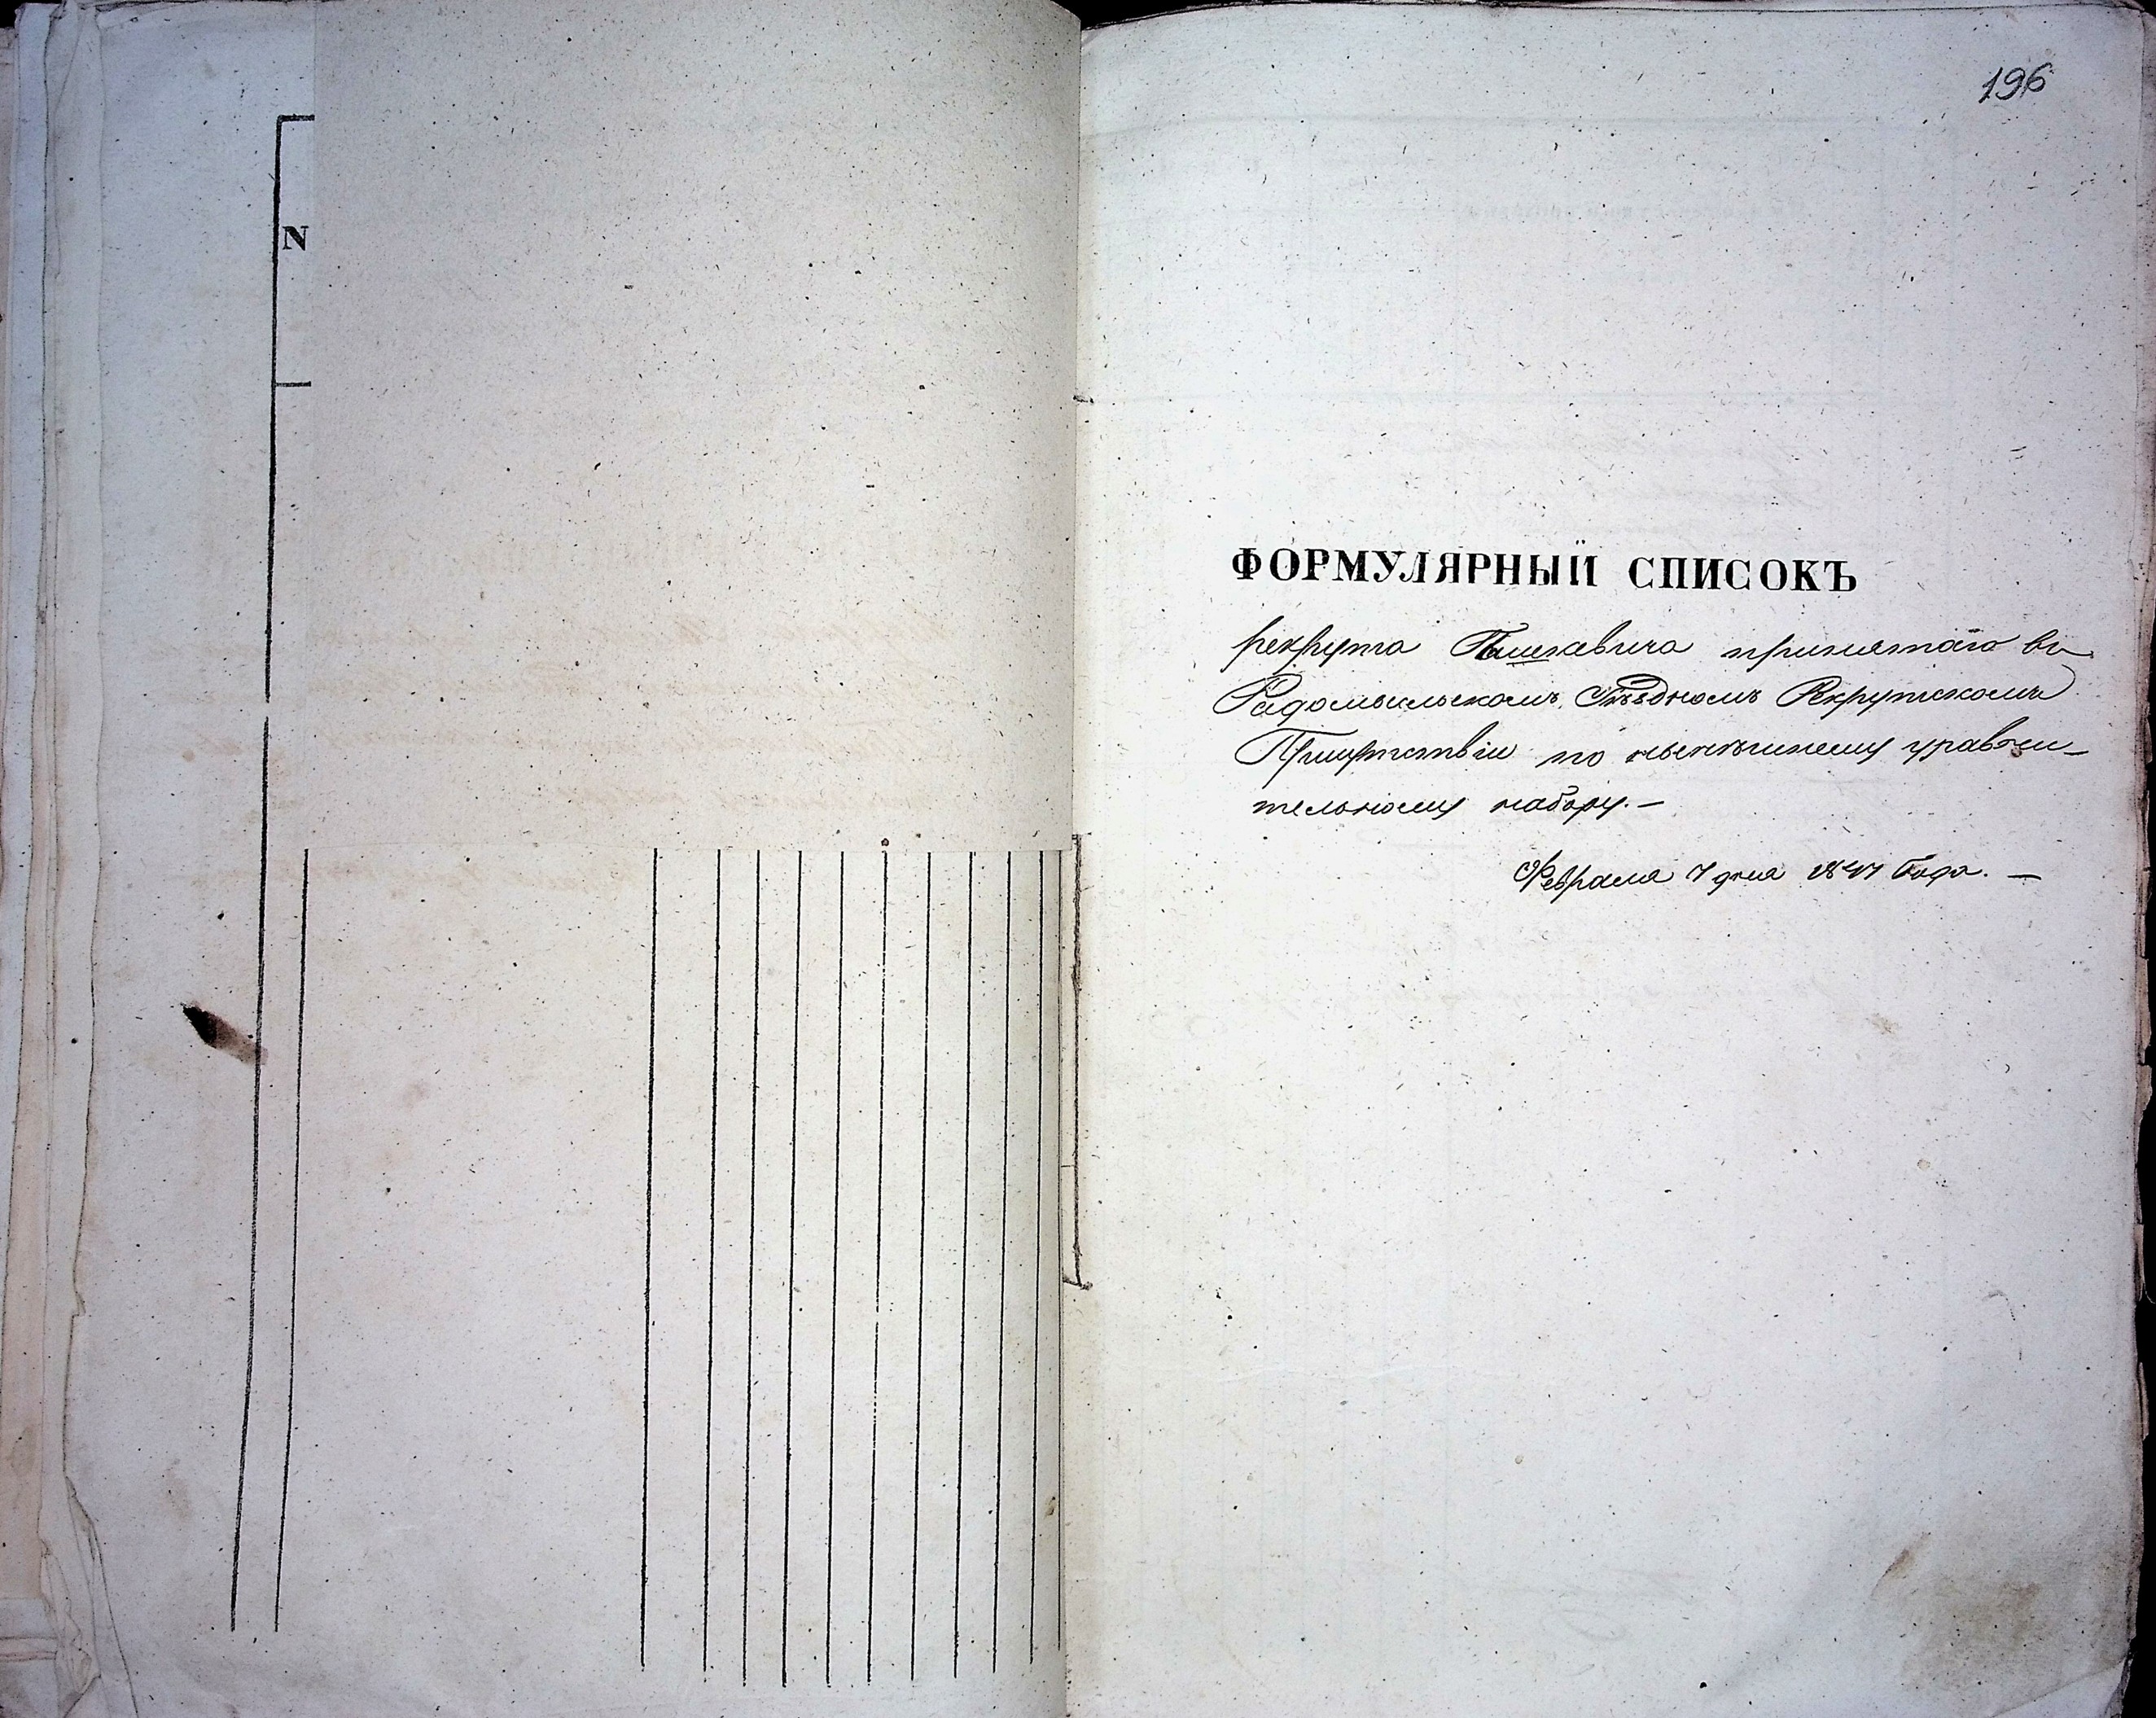 N
196
ФОРМУЛЯРНЫЙ СПИСОКЪ
рекрута принятаго въ
Радомысльскомъ Уѣздномъ Рекрутскомъ
Присутствіи по нынѣшнему уравни-
тельному набору.-
Февраля 7 дня 1847 Года. -